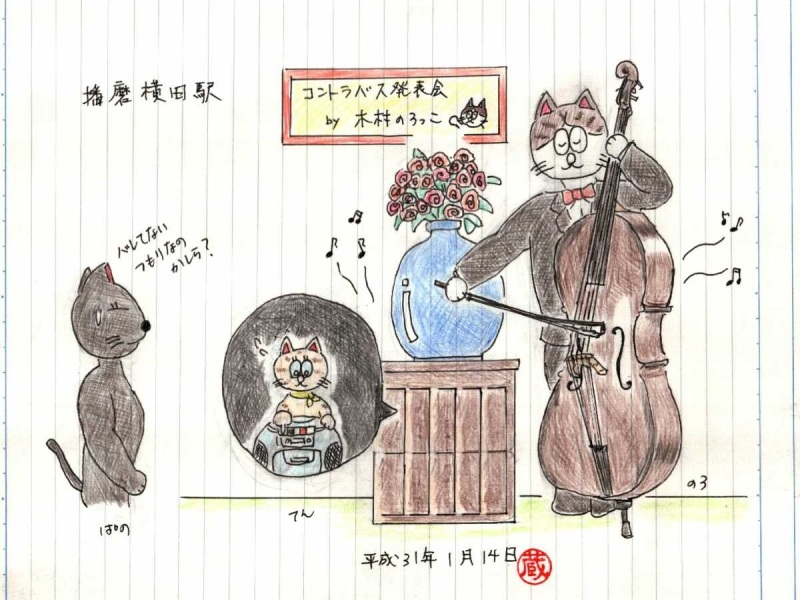 播磨横田駅
コントラバス発表会
by 木林のろっこ
バレてない
つもりなの
かしら?
ぱの
てん
のろ
平成31年1月14日
蔵